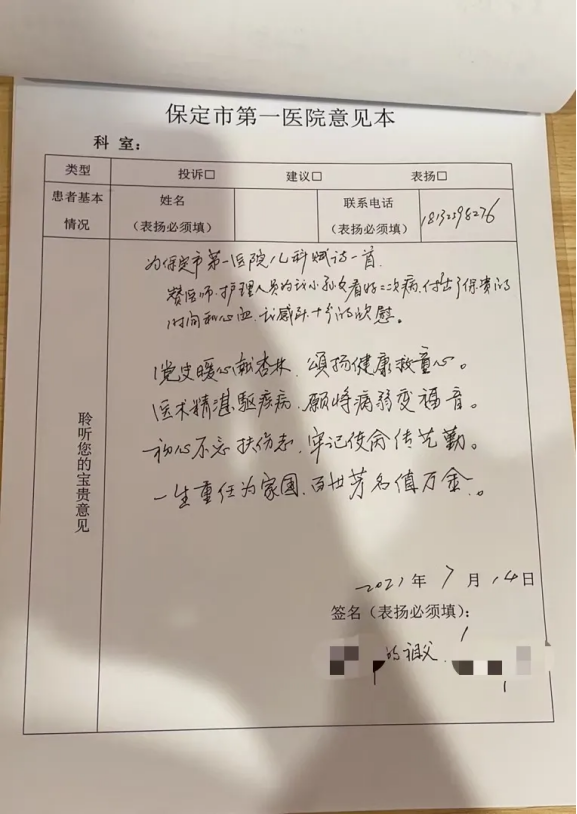 保定市第一医院意见本
科 室：
类型 投诉□ 建议□ 表扬□
患者基本情况 姓名（表扬必须填） 联系电话（表扬必须填）
为保定市第一医院儿科赋诗一首
赞医师、护理人员为我小孙女看好二次病,付出了保贵的
时间和心血,我感到十分的欣慰。
党史暖心献杏林、颂扬健康救童心。
医术精湛驱疾病、愿将病弱变福音。
初心不忘扶伤志、牢记使命传芜勤。
一生重任为家国、百世芳名值万金。
聆听您的宝贵意见
2021年7月14日
签名（表扬必须填）：
的祖父